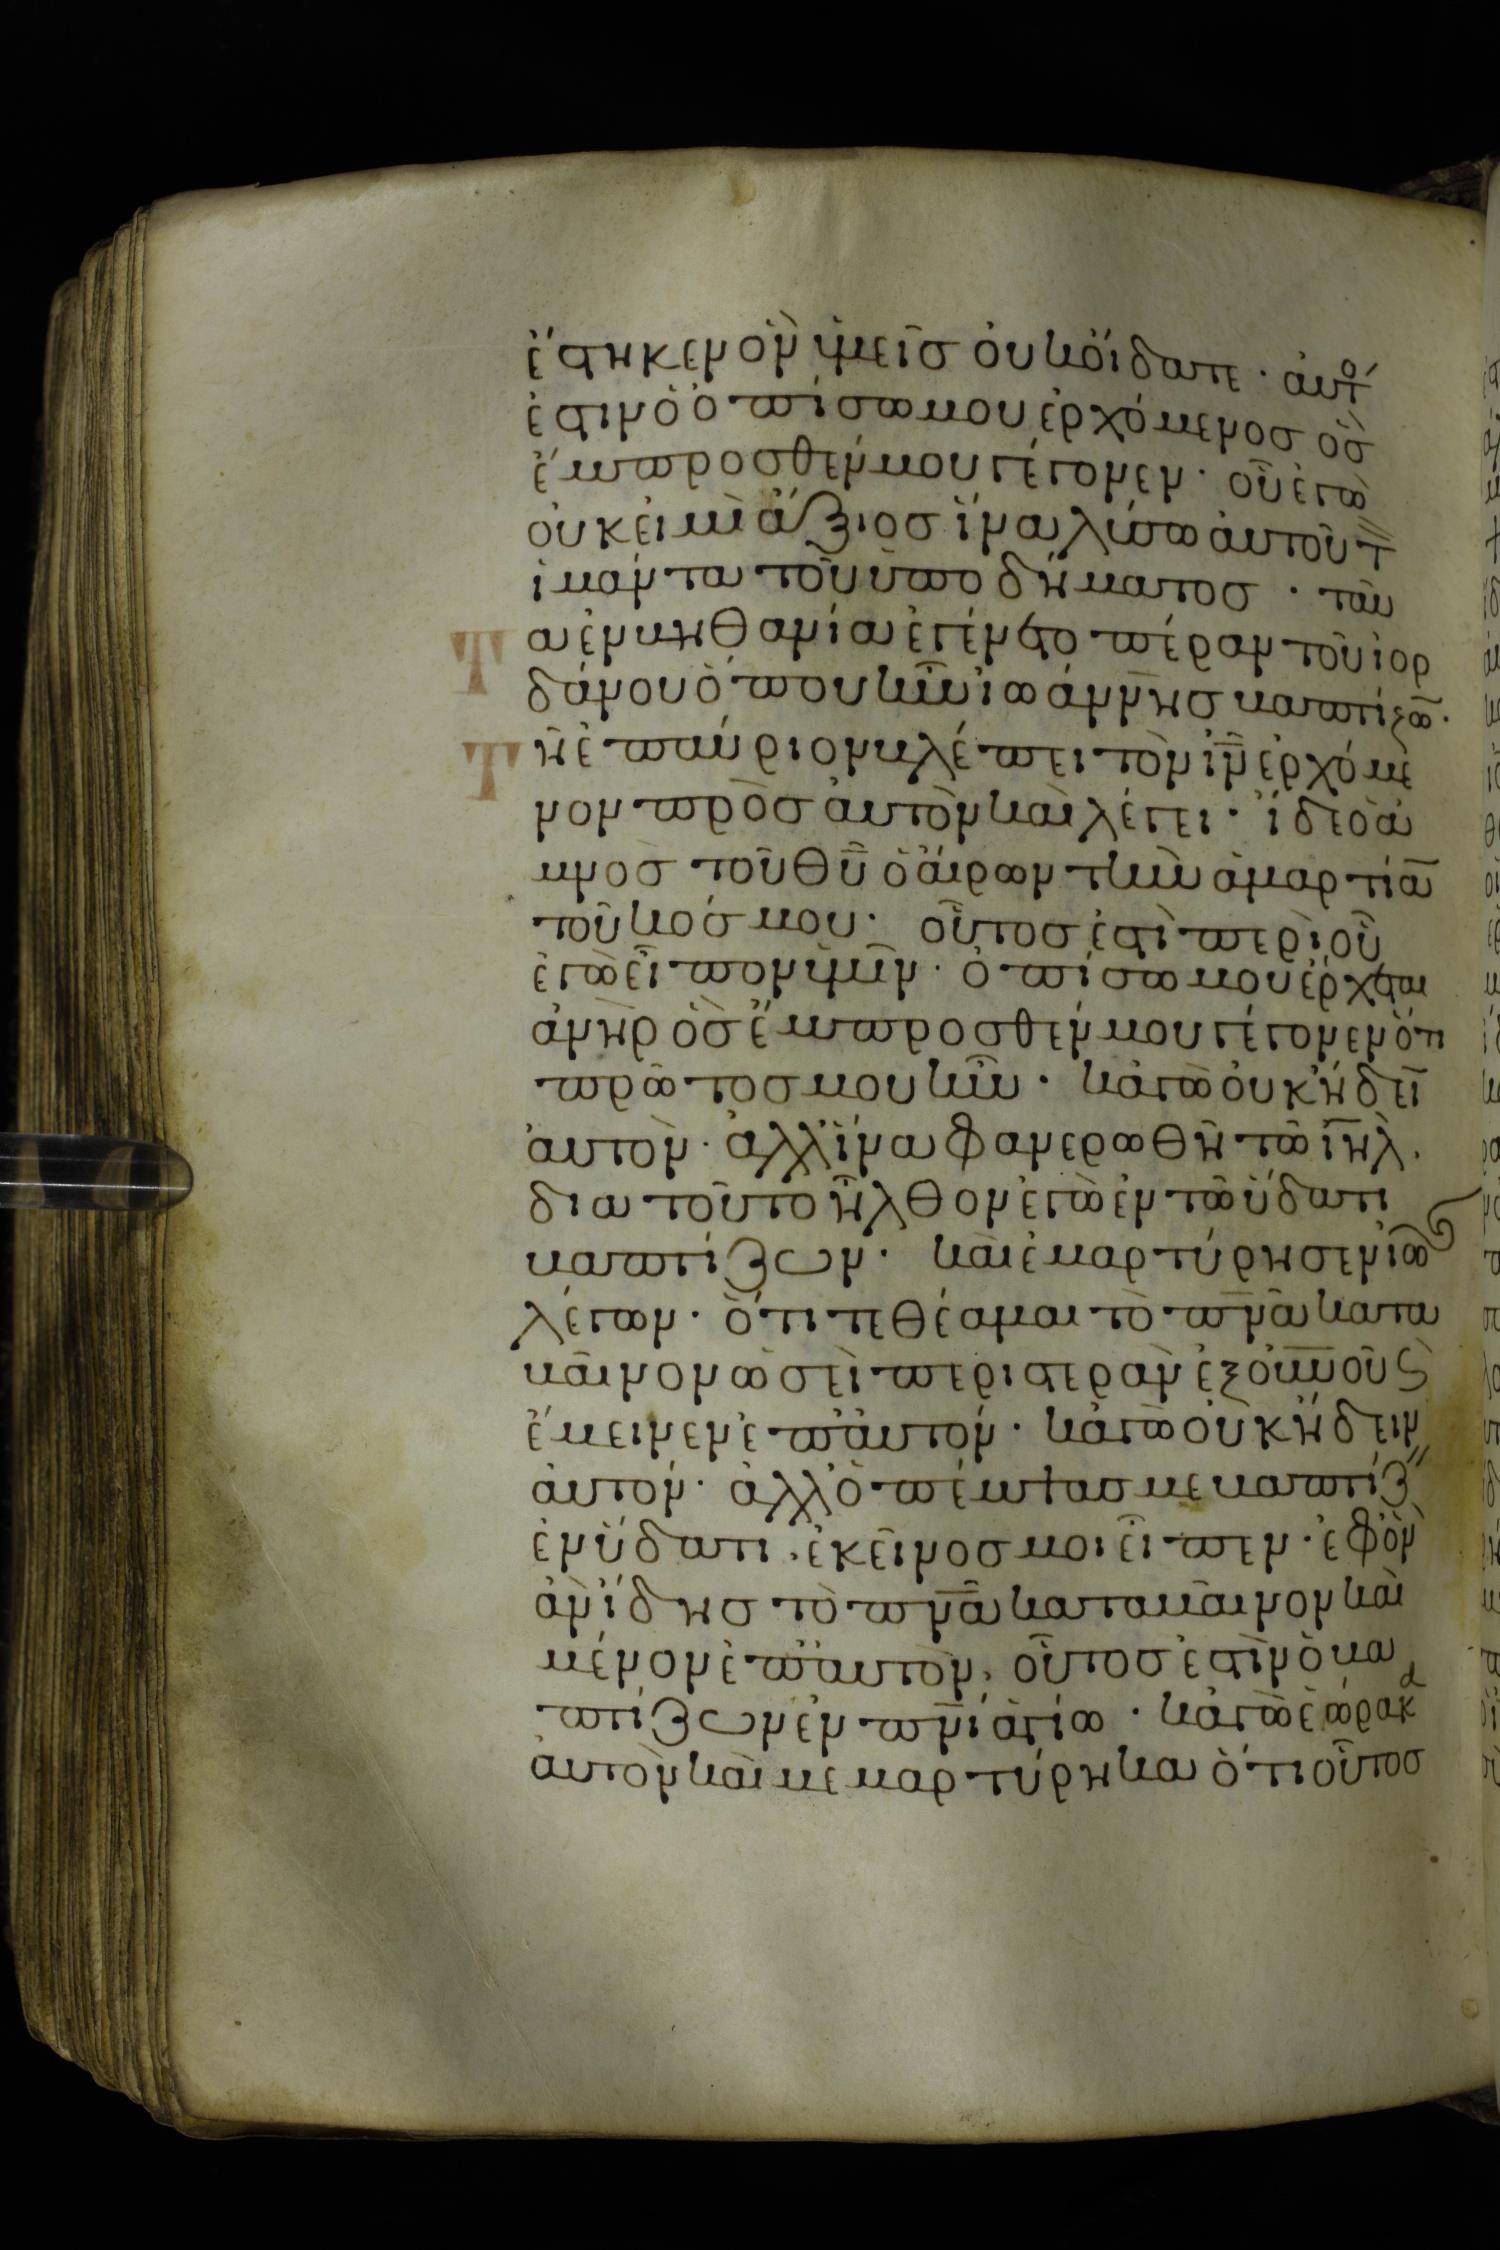 ἕστηκεν ὃν ὑμεῖς οὐκ οἴδατε · αὐτό
ἐστιν ὁ ὀπίσω μου ἐρχόμενος ὃς
ἔμπροσθέν μου γέγονεν · οὗ ἐγὼ
οὐκ εἰμὶ ἄξιος ἵνα λύσω αὐτοῦ τ
ἱμάντα τοῦ ὑποδήματος · ταῦ
Τα ἐν βηθανία ἐγένετο πέραν τοῦ ἰορ
δάνου ὅπου ἦν ἰωάννης βαπτίζω̅ ·
Τῆ ἐπαύριον βλέπει τὸν ι̅ν̅ ἐρχόμε
νον πρὸς αὐτὸν καὶ λέγει · ἴδε ὁ ἀ
μνὸς τοῦ θ̅υ̅ ὁ αἴρων τὴν ἁμαρτία̅
τοῦ κόσμου · οὗτος ἐστὶ περὶ οὗ
ἐγὼ εἶπον ὑμῖν · ὀπίσω μου ἔρχεται
ἀνὴρ ὃς ἔμπροσθέν μου γέγονεν ὅτι
πρῶτος μου ἦν · κἀγὼ οὐκ ἤδει̅
αὐτὸν · ἀλλ ἵνα φανερωθῆ τῶ ι̅η̅λ̅ ·
δια τοῦτο ἦλθον ἐγὼ ἐν τῶ ὕδατι
βαπτίζων · καὶ ἐμαρτύρησεν ἰω̅
λέγων · ὅτι τεθέαμαι τὸ π̅ν̅α̅ κατα
βαῖνον ὡσεὶ περιστερὰν ἐξ ο̅υ̅ν̅οῦ ϗ
ἔμεινεν ἐπ αὐτόν · κἀγὼ οὐκ ἤδειν
αὐτόν · ἀλλ ὁ πέμψας με βαπτίζειν
ἐν ὕδατι · ἐκεῖνος μοι εἶπεν · ἐφ ὃν
ἂν ἴδης τὸ π̅ν̅α̅ καταβαῖνον καὶ
μένον ἐπ αὐτὸν, οὗτος ἐστὶν ὁ βα
πτίζων ἐν π̅ν̅ι̅ ἁγίω · κἀγὼ ἑώρακα
αὐτὸν καὶ μεμαρτύρηκα ὅτι οὗτος